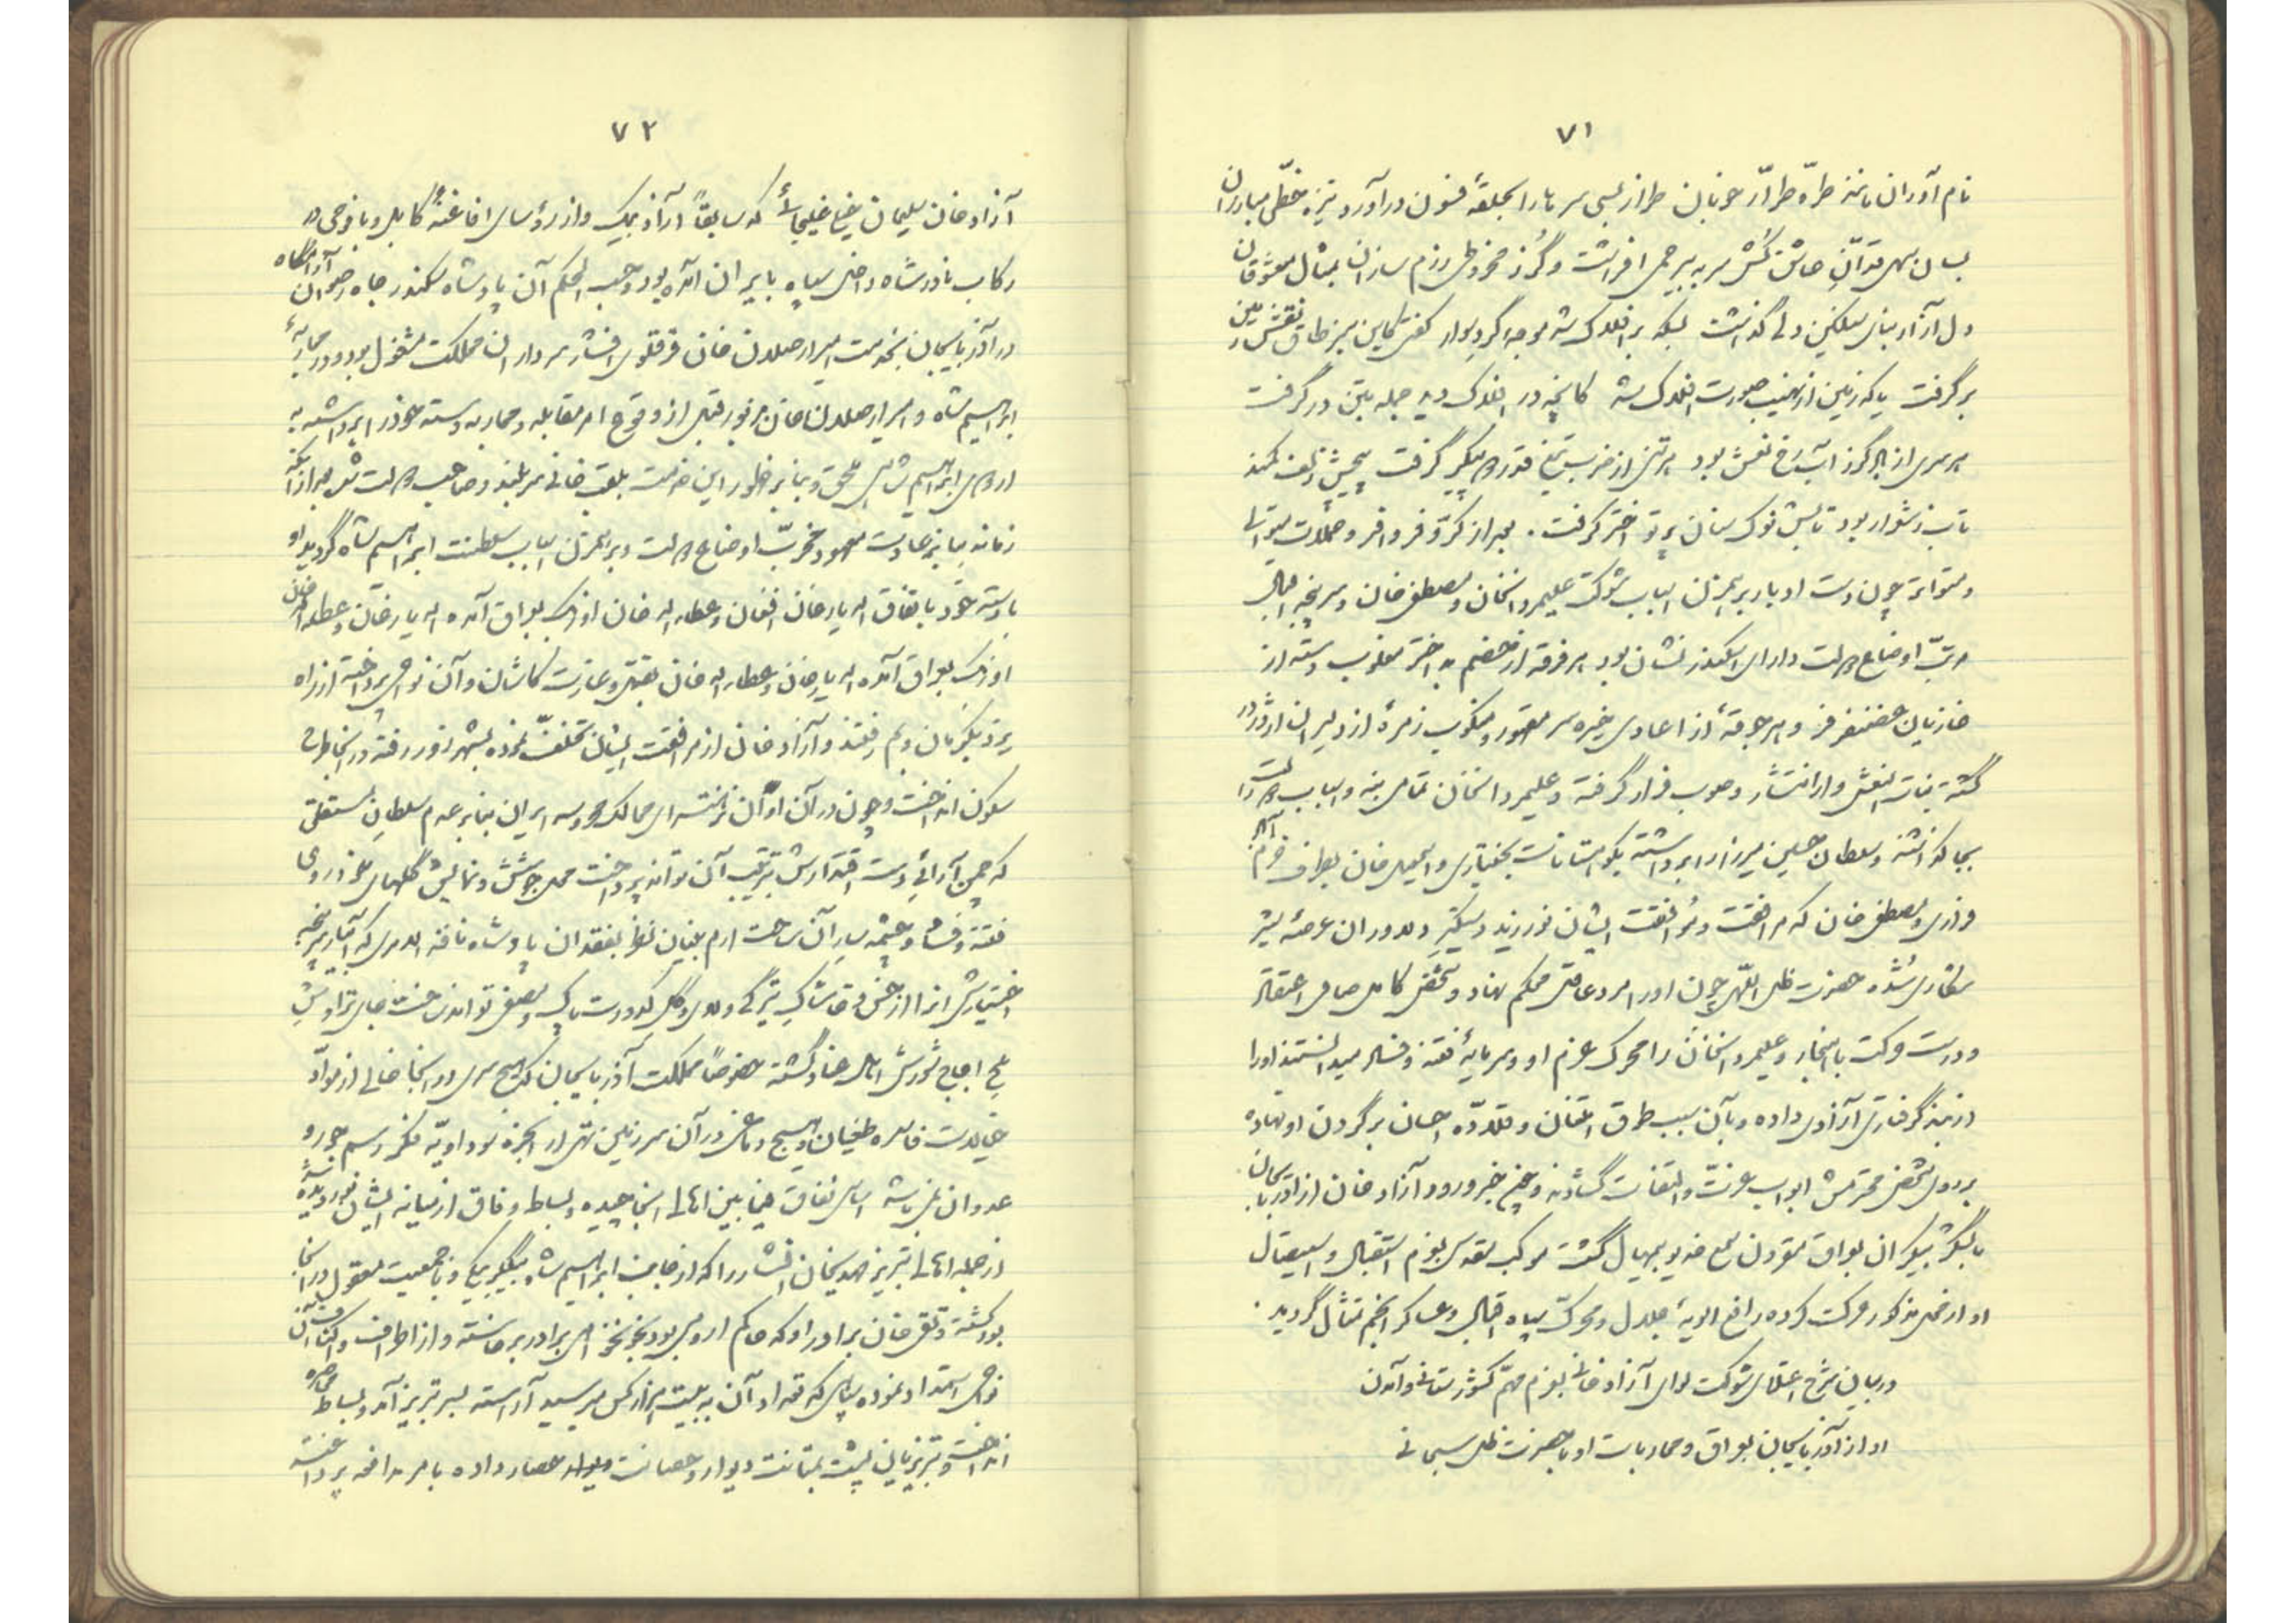 ۷۱
نام آوران مانند طرّه طرّار خوبان طراز بسی سرها را بحلقهٔ فسون درآورد و نیزه خطّی مبارزان
بسان سهی قدّان عاشق کُش سر به بیرحمی افراشت و گُرز مخروطی رزم سازان بمثال معشوقان
دل آزار بنای سنگین دلی گذاشت
برگرفت یا که زمین از نهیب صورت افلاک شد کانچه در افلاک دید جمله بتن درگرفت
هر سری از گرز نقش بود هر تنی از ضرب تیغ گرفت
تابش نوک سنان پرتو اختر گرفت. بعد از کرّ و فر وافر و حملات متوالی
و متواتر چون دست ادبار برهمزن اسباب شوکت علیمردانخان و مصطفی خان و سرپنجه اقبال
مرتّب اوضاع دولت دارای اسکندر نشان بود هر فرقه از خصم بد اختر مغلوب دسته از
غازیان غضنفر فر و هر جوقهٔ از اعادی خیره سر مقهور و منکوب زمرهٔ از دلیران اژدر در
گشته بنات النعش وار انتشار و صوب فرار گرفته و علیمردانخان تمامی بنه و اسباب دولت را
بجا گذاشته و سلطان حسین میرزا را برداشته بکوهستانات بختیاری و اسمعیل خان بطرف خرم آباد
و از مصطفی خان که مرافقت و موافقت ایشان نورزید دستگیر دلاوران عرصهٔ شیر
شکاری شده حضرت ظل اللّهی چون او را مرد عاقل محکم نهاد و شخص کامل صافی اعتقاد
و درست حرکت با هنجار و علیمردانخان را محرک عزم او و سرمایهٔ فتنه و فساد میدانستند او را
از بند گرفتاری آزادی داده و بآن سبب طوق امتنان و قلادّه احسان برگردن او نهاده
بر روی شخص محترمش ابواب عزّت و التفات گشاده و چون خبر ورود آزاد خان از آذربایجان
با لشکر بیکران بعراق مقرون سمع خدیو بیهمال گشت موکب مقدس بعزم استقبال و استیصال
او از محل مذکور حرکت کرده رافع الویهٔ جلال و محرّک سپاه اقبال و عساکر انجم تمثال گردید.
در بیان شرح اعتلای شوکت لوای آزاد خانی بعزم مهمّ کشورستانی و آمدن
او از آذربایجان بعراق و محاربات او با حضرت ظل سبحانی
۷۲
آزاد خان سلیمان خیل غلیجائی که سابقاً آزاد بیک و از رؤسای افاغنهٔ کابل و با فوجی در
رکاب نادرشاه داخل سپاه بایران آمده بود حسب الحکم آن پادشاه سکندر جاه رضوان آرامگاه
در آذربایجان بخدمت امیر ارصلان خان قرقلوی افشار سردار آن مملکت مشغول بود و در محاربهٔ
ابراهیم شاه و امیر ارصلان خان مزبور قبل از وقوع امر مقابله و محاربه دسته خود را برداشته به
اردوی ابراهیم شاهی ملحق و بنابر ظهور این خدمت بلقب خانی سربلند و صاحب دولت شد بعد از آنکه
زمانه بنابر عادت معهود مخرّب اوضاع دولت و برهمزن اسباب سلطنت ابراهیم شاه گردید او
با دسته خود باتفاق اله یار خان افغان و عطاء اله خان اوزبک بعراق آمده اله یار خان و عطاء اله خان
اوزبک بعراق آمده اله یار خان و عطاء اله خان بقتل و غارت کاشان و آن نواحی پرداخته از راه
یزد بکرمان و بم رفتند و آزاد خان از مرافقت ایشان تخلّف نموده بشهر زور رفته در آنجا طرح
سکون انداخت و چون در آن اوان عرصهای ممالک محروسه ایران بنابر عدم سلطان مستقلی
که چمن آرائی دست اقتدارش بترتیب آن تواند پرداخت محل جوشش و نمایش گلهای خودروی
فتنه و فساد و چشمه سار آن ساحت ارم بنیان بفقدان پادشاه نافذ الامری که آبیار سرپنجه
اختیارش آنرا از خس و خاشاک تیرگی و لای و گل کدورت پاک و مصفی تواند ساخت جای تراوش
ملح اجاج شورش اهل عناد گشته خصوصاً مملکت آذربایجان که هیچ سری در آنجا خالی از موادّ
خیالات فاسده طغیان و هیچ دماغی در آن سرزمین تهی از ابخره سوداویّه فکر رسم جور و
عدوان نمیباشد اساس نفاق فیمابین اهالی آنجا چیده و بساط وفاق از میانه ایشان نوردیده شد
از جمله اهالی تبریز مهدیخان افشار را که از جانب ابراهیم شاه بیگلربیگی و با جمعیت معقول در آنجا
بود کشته و نقی خان برادر او که حاکم ارومی بود بخونخواهی برادر برخاسته و از اطراف و اکناف آن
نواحی استمداد نموده سپاهی که تعداد آن به بیست هزار کس میرسید آراسته بسر تبریز آمد و بساط محاصره
انداخت و تبریزیان پشت بمتانت دیوار و حصانت حصار داده بامر مدافعه پرداخته